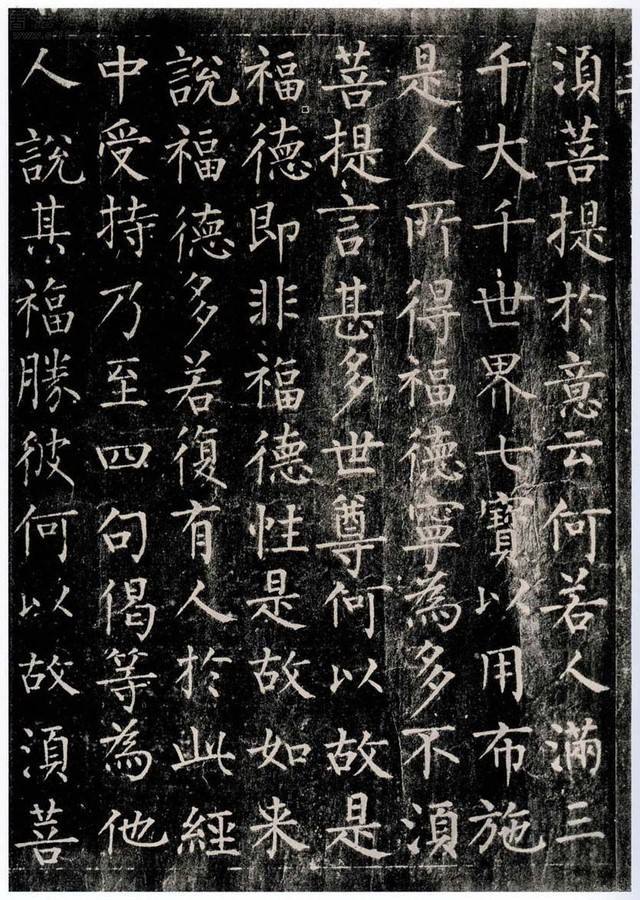 須菩提於意云何若人滿三
千大千世界七寶以用布施
是人所得福德寧為多不須
菩提言甚多世尊何以故是
福德即非福德性是故如来
說福德多若復有人於此經
中受持乃至四句偈等為他
人說其福勝彼何以故須菩